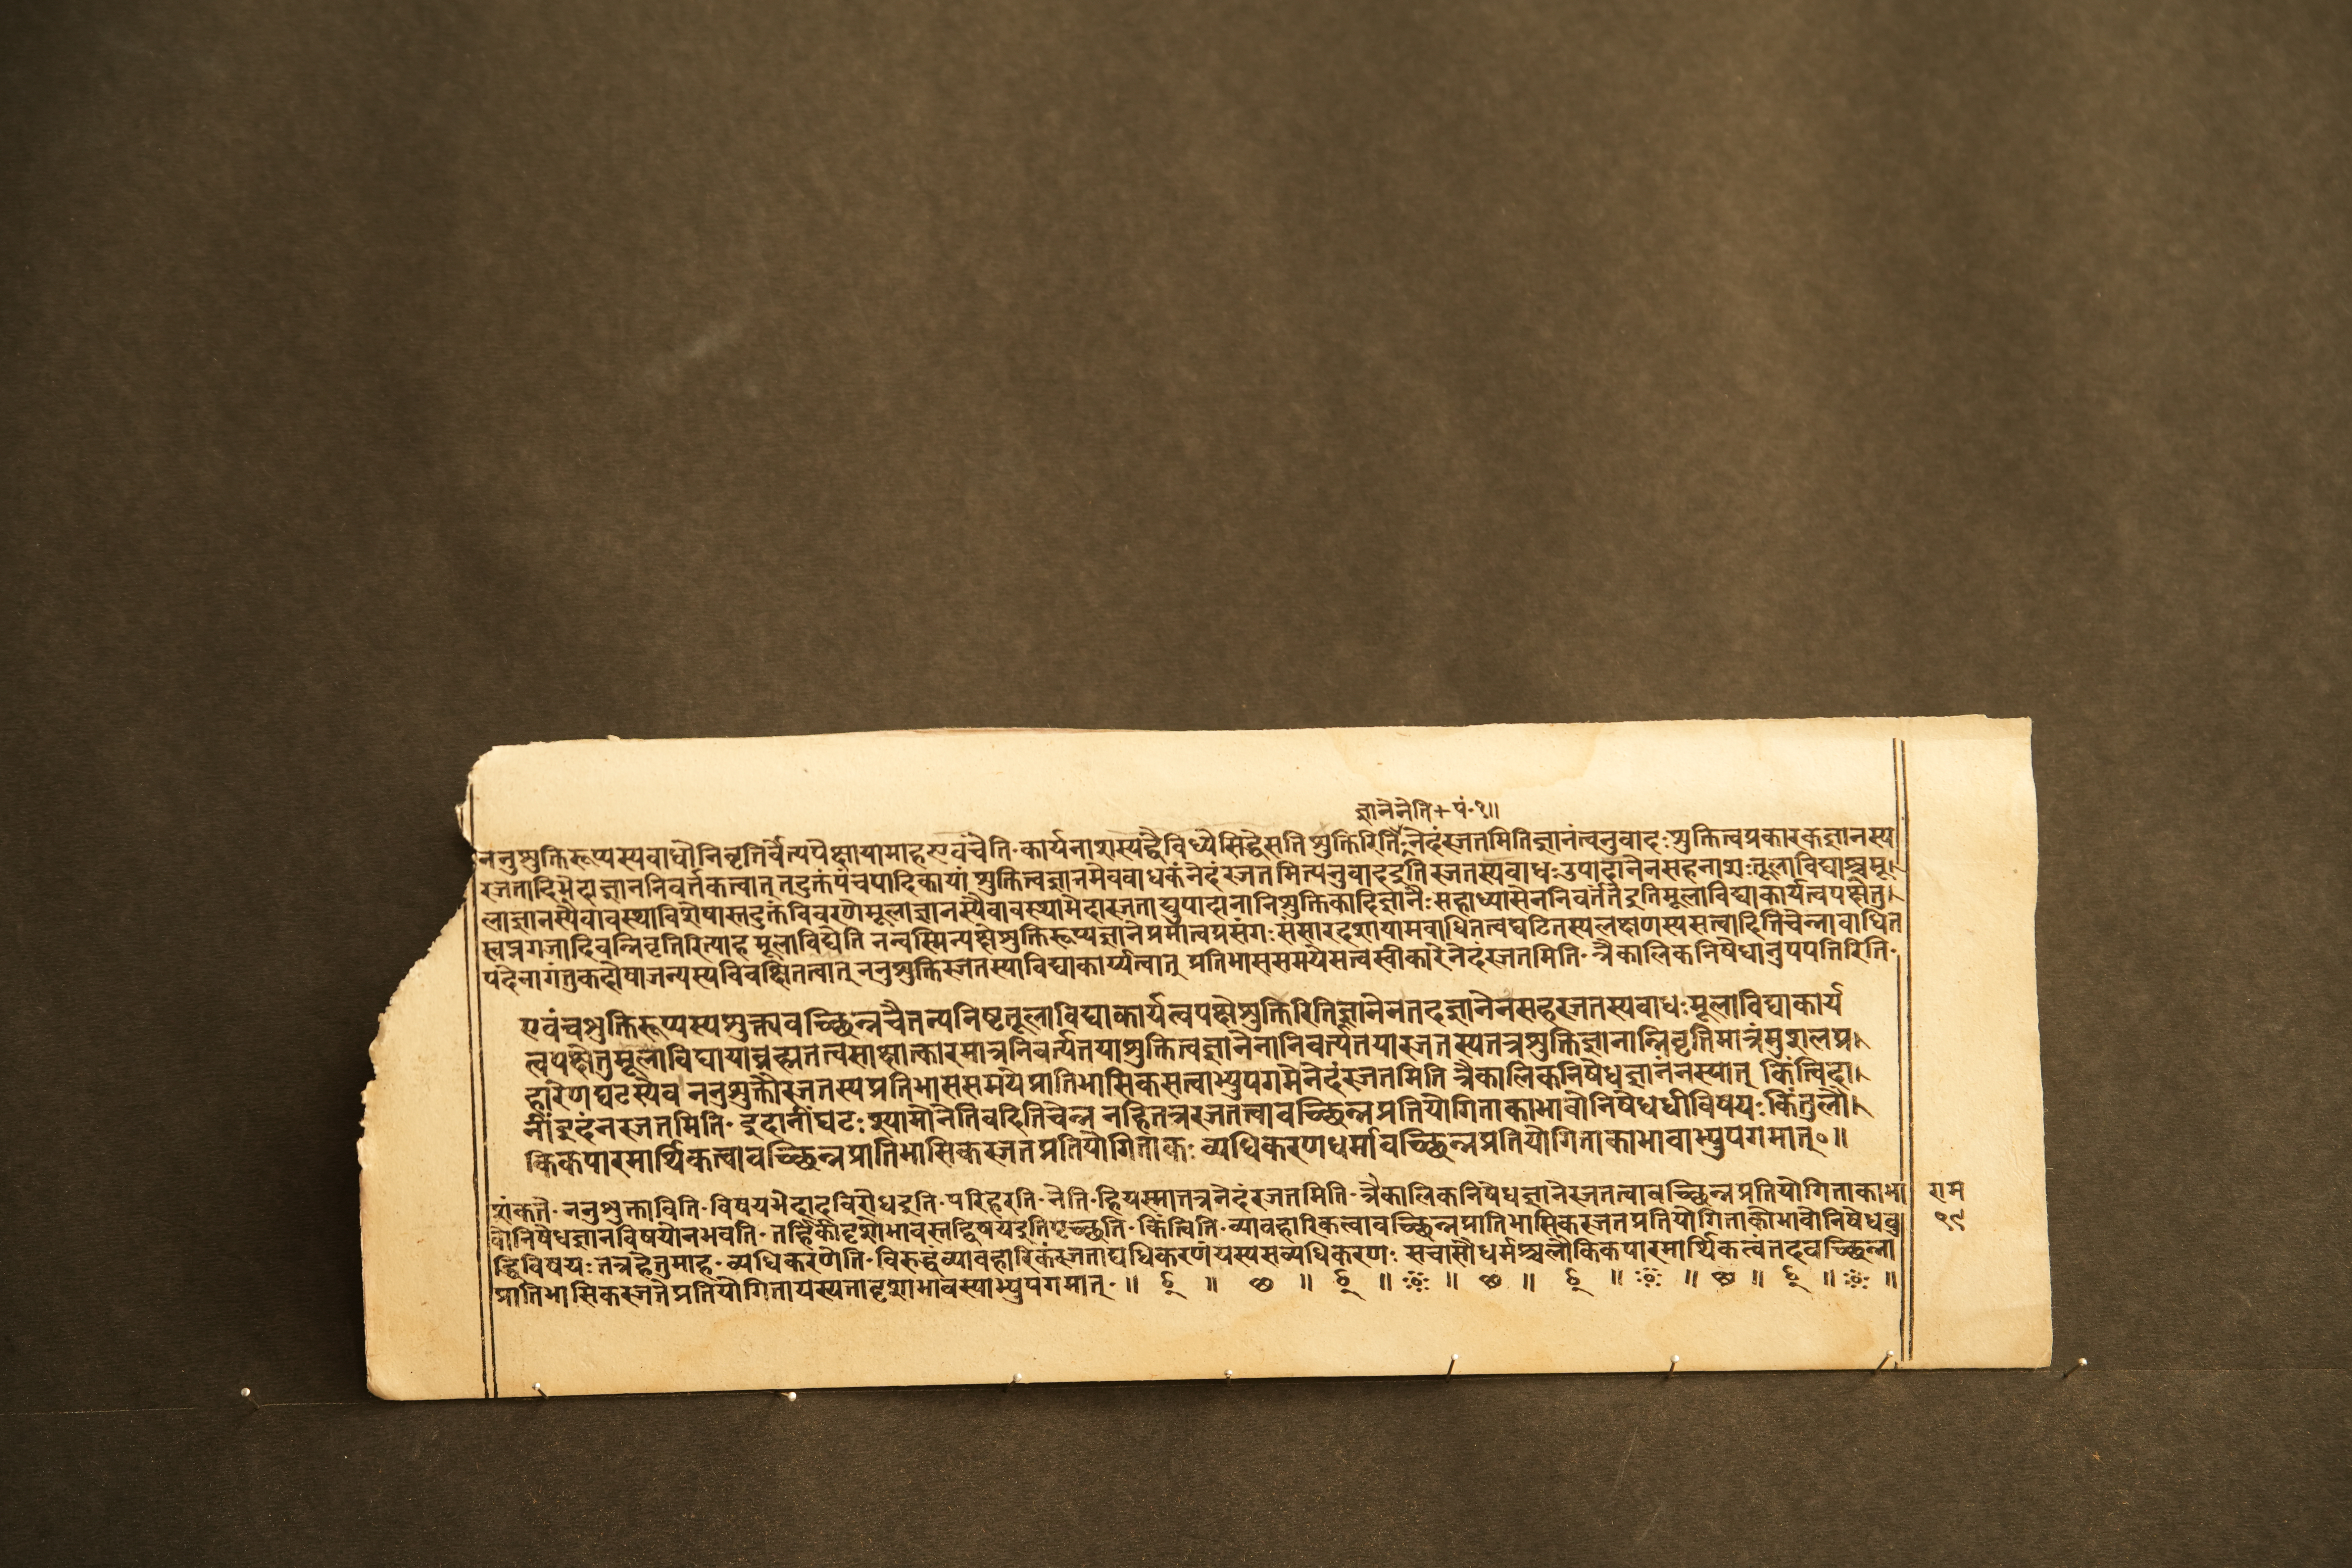 ज्ञानेनेति+पं॰१॥
ननुशुक्तिरूप्यस्यबाधोनिवृत्तिर्वेत्यपेक्षायामाहएवंचेति॰कार्यनाशस्यद्वैविध्येसिद्धेसति शुक्तिरिति॰नेदंरजतमितिज्ञानंत्वनुवादः शुक्तित्वप्रकारकज्ञानस्य
रजतादिभेदाज्ञाननिवर्तकत्वात् तदुक्तंपंचपादिकायां शुक्तित्वज्ञानमेवबाधकंनेदंरजतमित्यनुवादइति रजतस्यबाधः उपादानेनसहनाशः तूलाविद्याश्चमू
लाज्ञानस्यैवावस्थाविशेषास्तदुक्तंविवरणेमूलाज्ञानस्यैवावस्थाभेदारजताद्युपादानानिशुक्तिकादिज्ञानैः सहाध्यासेननिवर्तंतेइतिमूलाविद्याकार्यत्वपक्षेतु
स्वप्नगजादिवन्निवृत्तिरित्याह मूलाविद्येति नन्वस्मिन्पक्षेशुक्तिरूप्यज्ञानेप्रमात्वप्रसंगः संसारदशायामबाधितत्वघटितस्यलक्षणस्यसत्वादितिचेन्नाबाधित
पदेनागंतुकदोषाजन्यस्यविवक्षितत्वात् ननुशुक्तिरजतस्याविद्याकार्य्यत्वात् प्रतिभाससमयेसत्वस्वीकारेनेदंरजतमिति॰त्रैकालिकनिषेधानुपपत्तिरिति॰
एवंचशुक्तिरूप्यस्यशुक्त्यवच्छिन्नचैतन्यनिष्टतूलाविद्याकार्यत्वपक्षेशुक्तिरितिज्ञानेनतदज्ञानेनसहरजतस्यबाधः मूलाविद्याकार्य
त्वपक्षेतुमूलाविद्यायाब्रह्मतत्वसाक्षात्कारमात्रनिवर्त्यतयाशुक्तित्वज्ञानेनानिवर्त्यतयारजतस्यतत्रशुक्तिज्ञानान्निवृत्तिमात्रंमुशलप्र
हारेणघटस्येव ननुशुक्तौरजतस्यप्रतिभाससमयेप्रातिभासिकसत्वाभ्युपगमेनेदंरजतमिति त्रैकालिकनिषेधज्ञानंनस्यात् किंत्विदा
नींइदंनरजतमिति॰ इदानींघटः श्यामोनेतिवदितिचेन्न नहितत्ररजतत्वावच्छिन्नप्रतियोगिताकाभावोनिषेधधीविषयः किंतुलौ
किकपारमार्थिकत्वावच्छिन्नप्रातिभासिकरजतप्रतियोगिताकः व्यधिकरणधर्मावच्छिन्नप्रतियोगिताकाभावाभ्युपगमात्॰॥
शंकते॰ ननुशुक्ताविति॰विषयभेदादविरोधइति॰ परिहरति॰ नेति॰हियस्मात्तत्रनेदंरजतमिति॰त्रैकालिकनिषेधज्ञानेरजतत्वावच्छिन्नप्रतियोगिताकाभा
वोनिषेधज्ञानविषयोनभवति॰ तर्हिकीदृशोभावस्तद्विषयइतिपृच्छति॰ किंत्विति॰व्यावहारिकत्वावच्छिन्नप्रातिभासिकरजतप्रतियोगिताकोभावोनिषेधबु
द्धिविषयः तत्रहेतुमाह॰ व्यधिकरणेति॰विरुद्धव्यावहारिकंरजताद्यधिकरणंयस्यसव्यधिकरणः सचासौधर्मश्चलौकिकपारमार्थिकत्वंतदवच्छिन्ना
प्रातिभासिकरजतेप्रतियोगितायस्यतादृशाभावस्याभ्युपगमात्॰॥
राम
१९